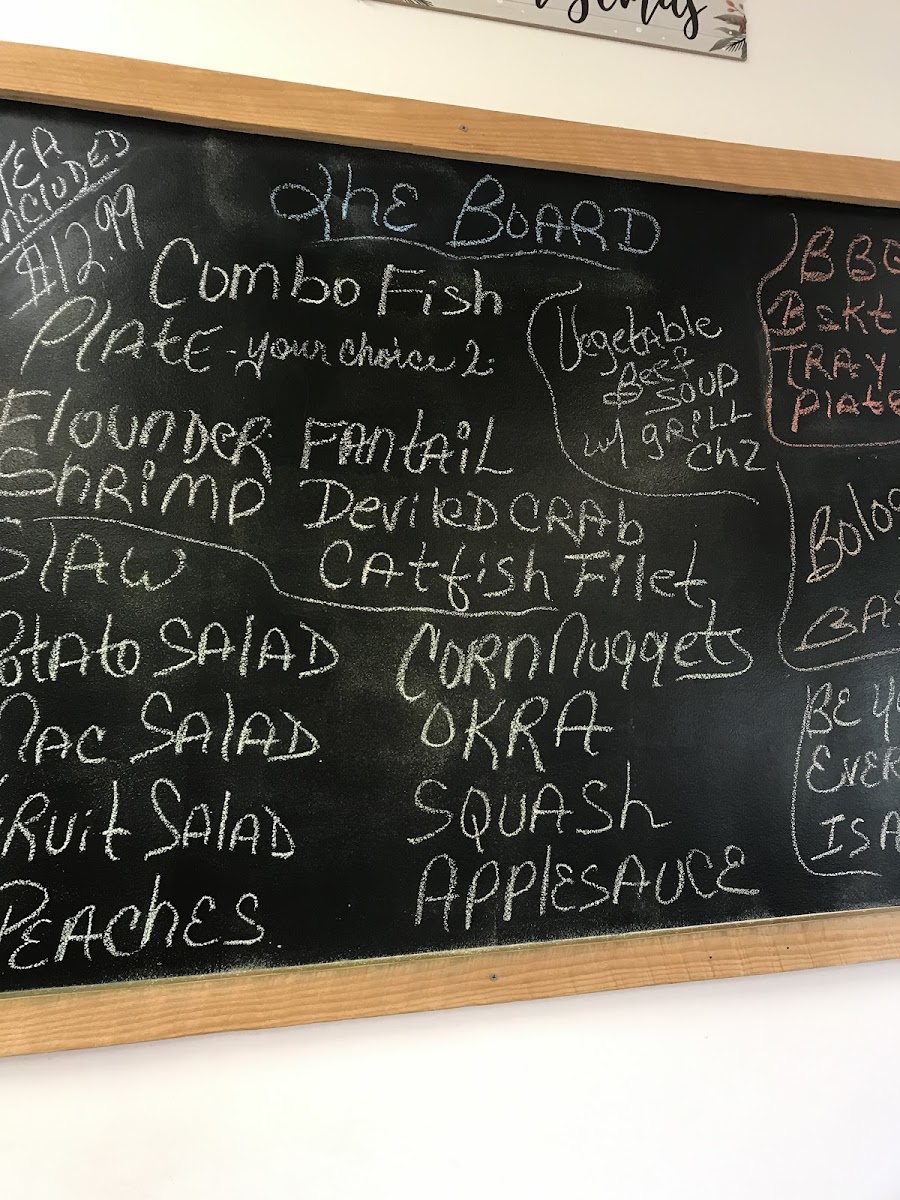 INCLUDED
$12.99
The BOARD
Combo Fish
PLATE - your choice 2.
Flounder FANtAIL
Shrimp Deviled CRAb
CAtfish Filet
Vegetable
Beef
SOUP
w/ gRILL
Chz
SLAW
Potato SALAD
Mac SALAD
FRuit SALAD
PEACHES
CORN Nuggets
OKRA
SQUASh
APPLESAUCE
BBQ
BSKt
TRAY
PlatE
BE
IS